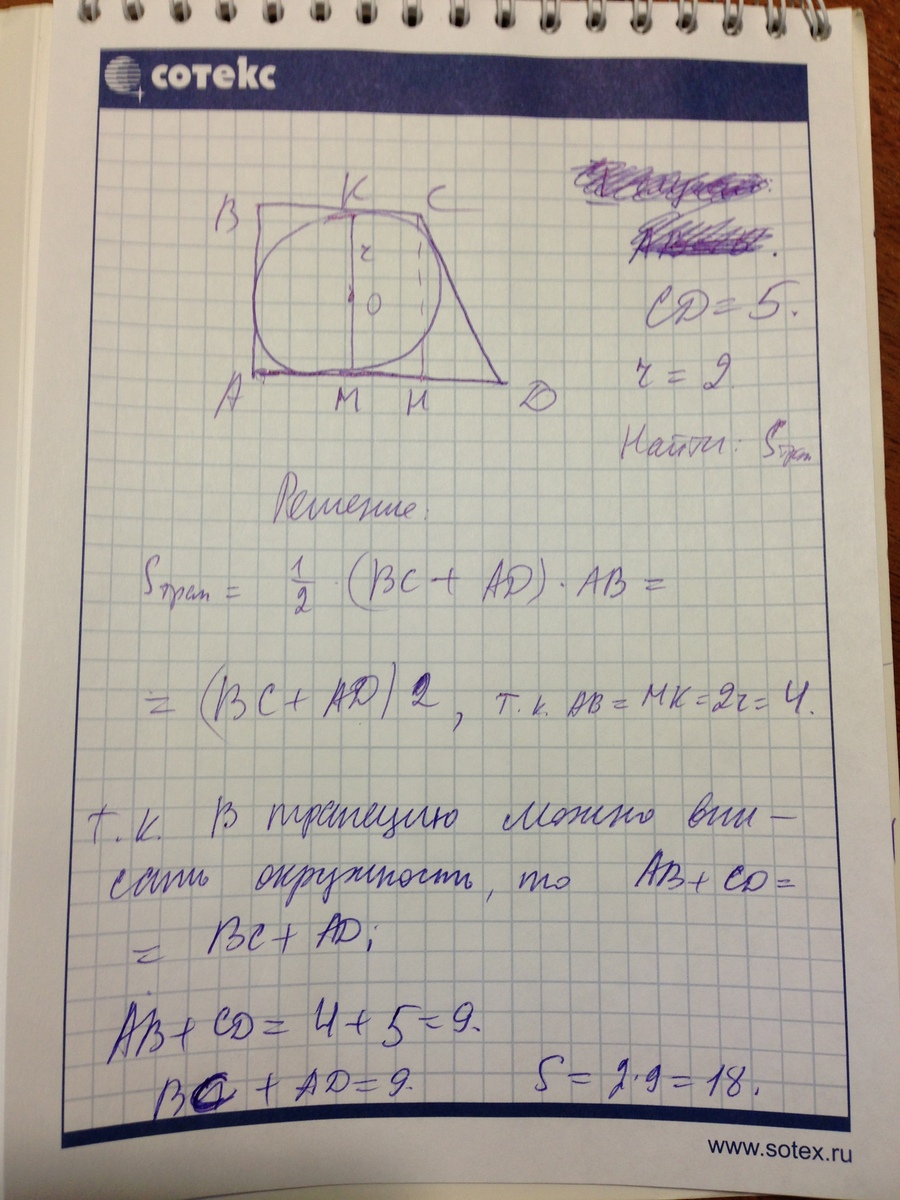 сотекс
B K C
r
O
A M H D
CD = 5.
r = 2
Найти: Sтрап
Решение:
Sтрап = 1/2 · (BC + AD) · AB =
= (BC + AD) 2, т.к. AB = MK = 2r = 4.
т.к. в трапецию можно впи-
сать окружность, то AB + CD =
= BC + AD;
AB + CD = 4 + 5 = 9.
BC + AD = 9. S = 2·9 = 18.
www.sotex.ru